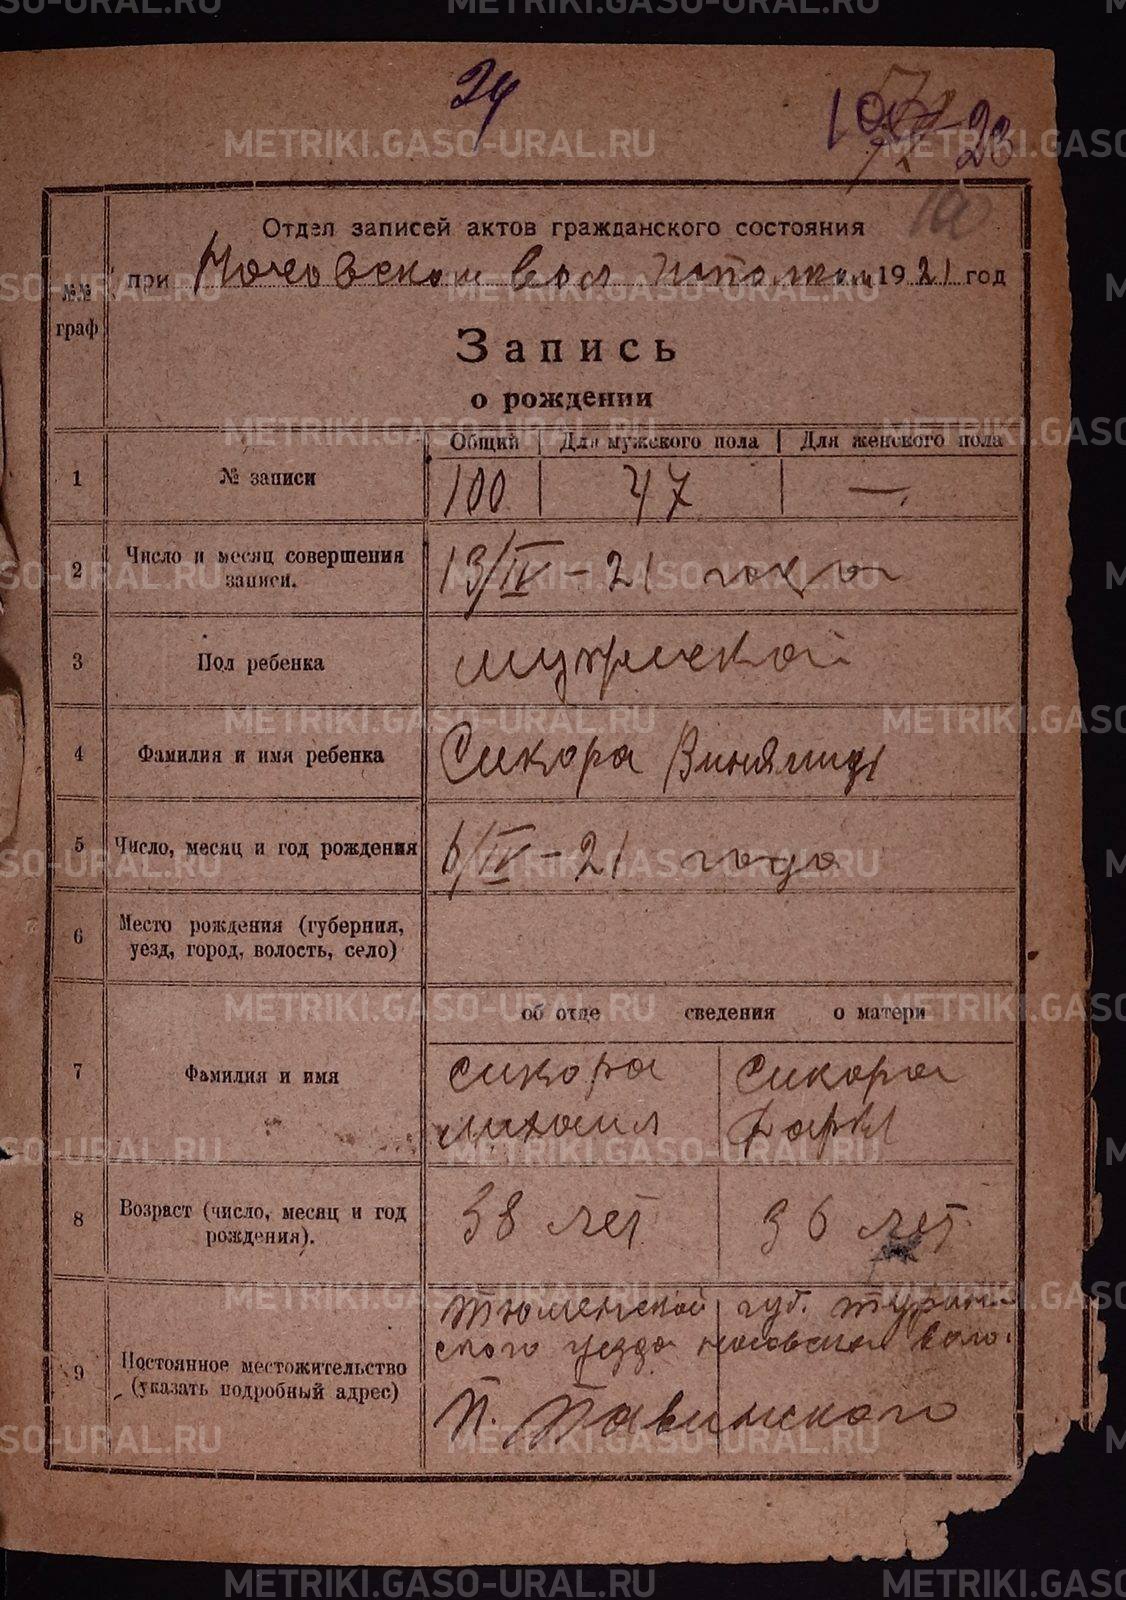 24
100
Отдел записей актов гражданского состояния
при Носовском вол исполком 1921 год
№№ граф
Запись
о рождении
Общий Для мужского пола Для женского пола
1 № записи 100 47 —
2 Число и месяц совершения записи. 13/IV - 21 года
3 Пол ребенка мужеской
4 Фамилия и имя ребенка Сикора
5 Число, месяц и год рождения 6/IV - 21 года
6 Место рождения (губерния, уезд, город, волость, село)
об отце сведения о матери
7 Фамилия и имя Сикора Михаил Сикора
8 Возраст (число, месяц и год рождения). 38 лет 36 лет
9 Постоянное местожительство (указать подробный адрес) Тюменской губ. Турин-
ского уезда
П.
METRIKI.GASO-URAL.RU